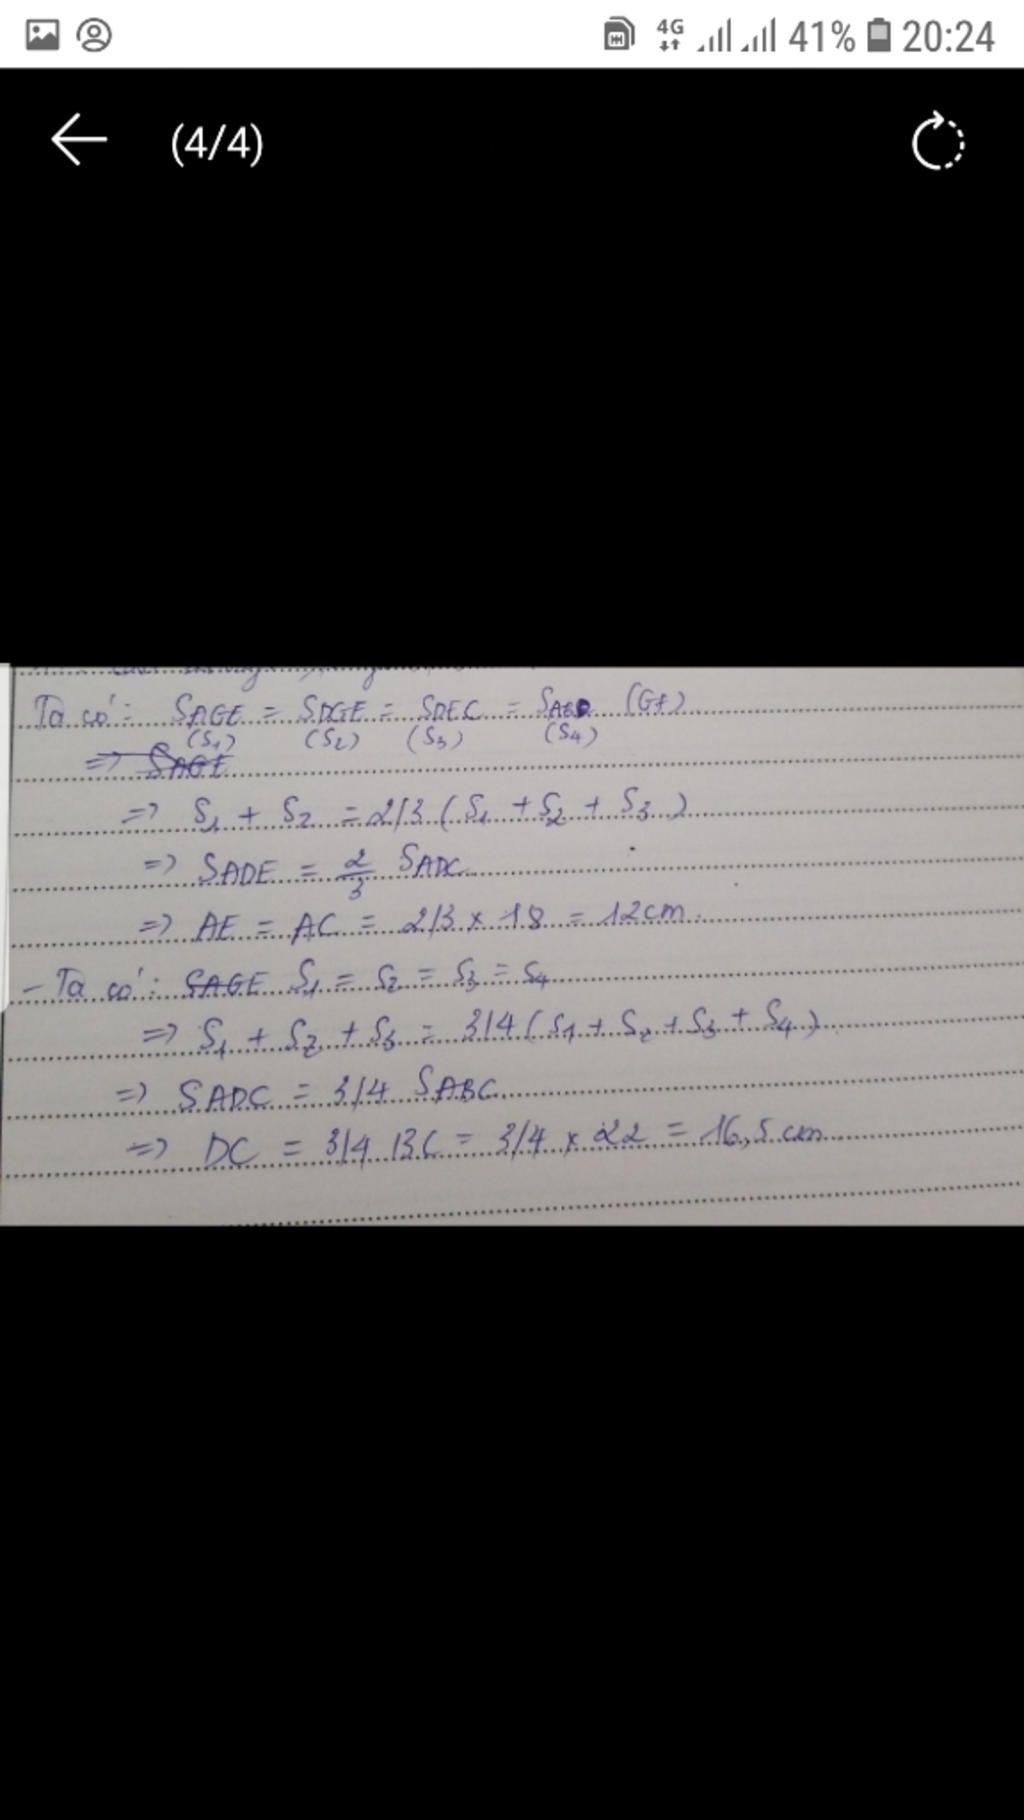 4G 41% 20:24
(4/4)
Ta có: SAGE = SDGE = SDEC = SABD (Gt)
(S1) (S2) (S3) (S4)
=> SAGE
=> S1 + S2 = 2/3 (S1 + S2 + S3)
=> SADE = 2/3 SADC
=> AE = AC = 2/3 x 18 = 12cm
- Ta có: SAGE S1 = S2 = S3 = S4
=> S1 + S2 + S3 = 3/4 (S1 + S2 + S3 + S4)
=> SADC = 3/4 SABC
=> DC = 3/4 BC = 3/4 x 22 = 16,5 cm